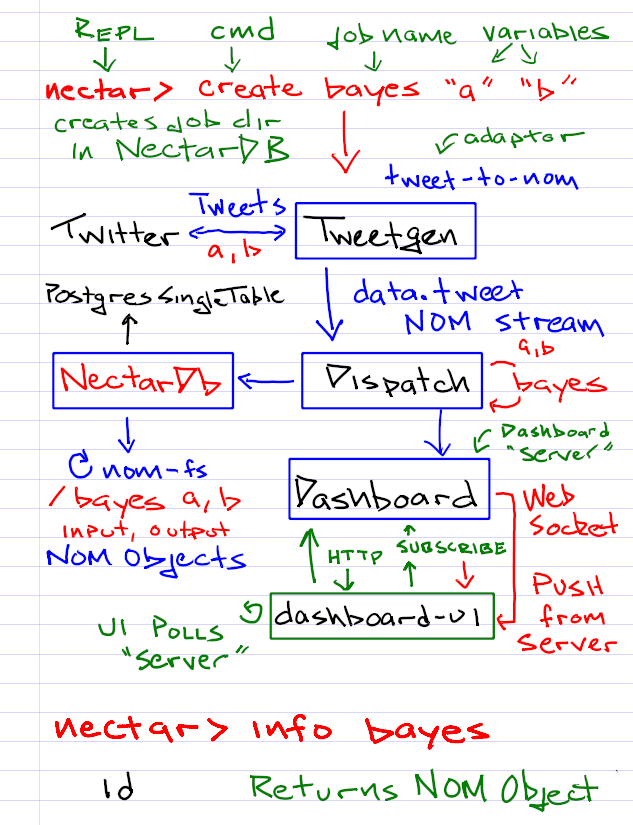 REPL cmd Job name variables
nectar> create bayes "a" "b"
creates job dir
in NectarDB
adaptor
tweet-to-nom
Tweets
Twitter
a, b
Tweetgen
Postgres SingleTable
data.tweet
NOM stream
NectarDb
Dispatch
a,b
bayes
Dashboard
"Server"
nom-fs
/bayes a, b
input, output
NOM Objects
Dashboard
Web
Socket
HTTP
SUBSCRIBE
Push
from
Server
dashboard-ui
UI POLLS
"Server"
nectar> info bayes
id Returns NOM Object